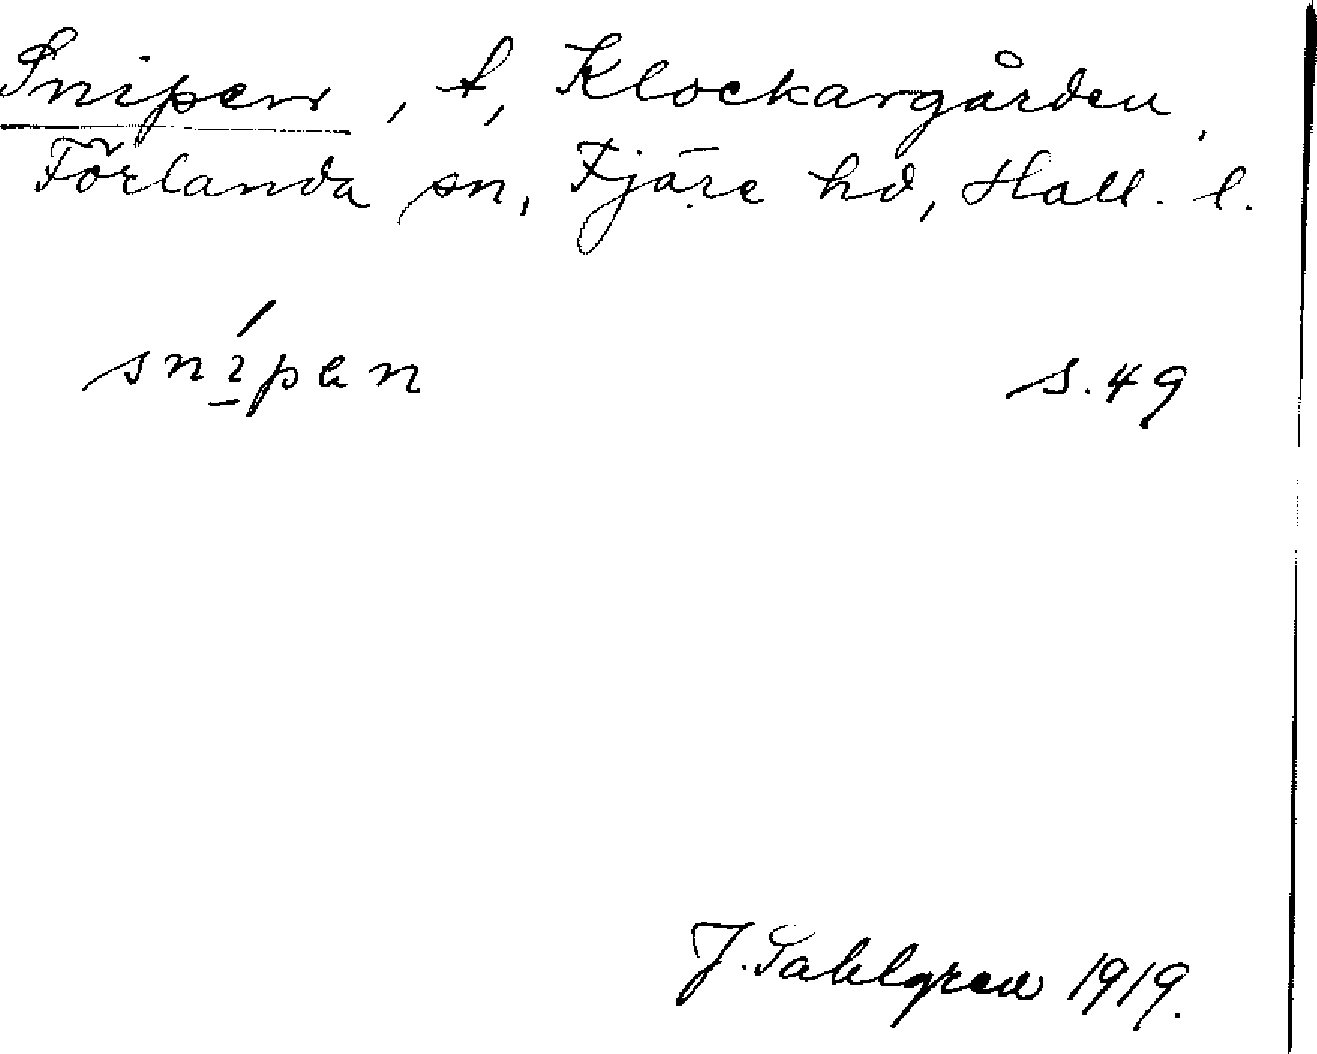 Snipen, t, Klockargården,
Förlanda sn, Fjäre hd, Hall. l.
snípen s.49
J. Sahlgren 1919.